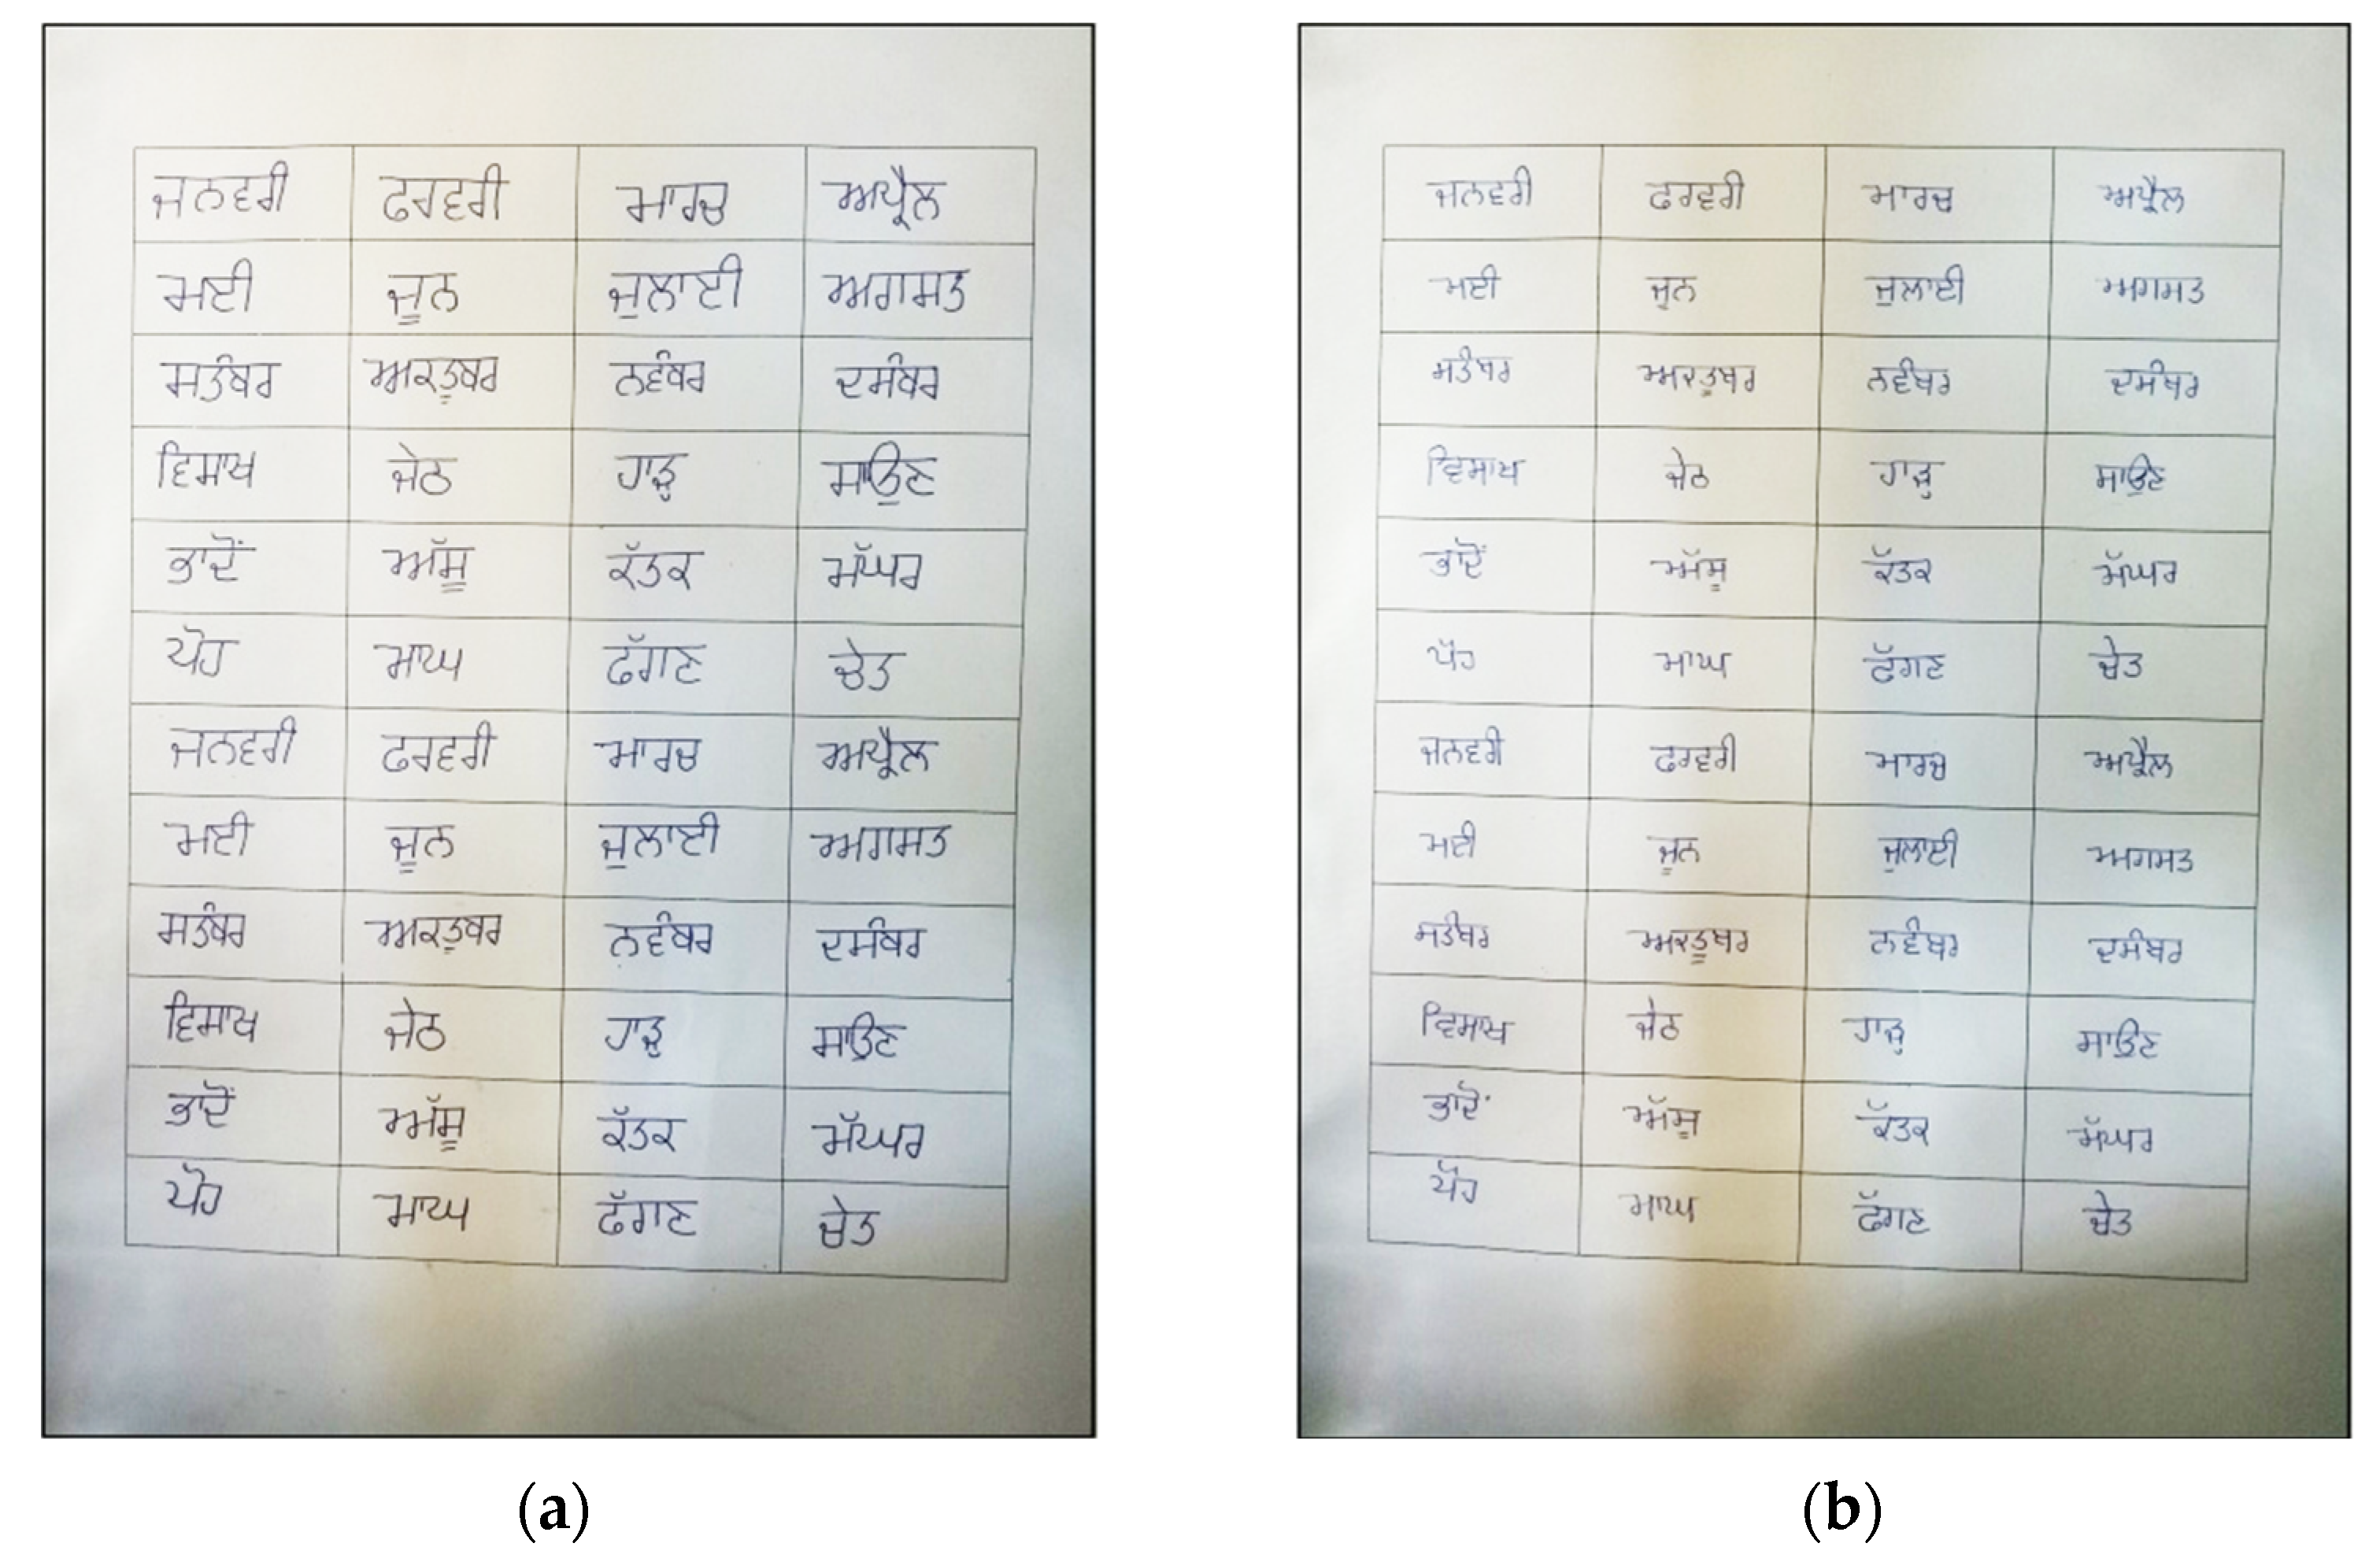 ਜਨਵਰੀ ਫਰਵਰੀ ਮਾਰਚ ਅਪ੍ਰੈਲ
ਮਈ ਜੂਨ ਜੁਲਾਈ ਅਗਸਤ
ਸਤੰਬਰ ਅਕਤੂਬਰ ਨਵੰਬਰ ਦਸੰਬਰ
ਵਿਸਾਖ ਜੇਠ ਹਾੜ੍ਹ ਸਾਉਣ
ਭਾਦੋਂ ਅੱਸੂ ਕੱਤਕ ਮੱਘਰ
ਪੋਹ ਮਾਘ ਫੱਗਣ ਚੇਤ
ਜਨਵਰੀ ਫਰਵਰੀ ਮਾਰਚ ਅਪ੍ਰੈਲ
ਮਈ ਜੂਨ ਜੁਲਾਈ ਅਗਸਤ
ਸਤੰਬਰ ਅਕਤੂਬਰ ਨਵੰਬਰ ਦਸੰਬਰ
ਵਿਸਾਖ ਜੇਠ ਹਾੜ੍ਹ ਸਾਉਣ
ਭਾਦੋਂ ਅੱਸੂ ਕੱਤਕ ਮੱਘਰ
ਪੋਹ ਮਾਘ ਫੱਗਣ ਚੇਤ
(a)
ਜਨਵਰੀ ਫਰਵਰੀ ਮਾਰਚ ਅਪ੍ਰੈਲ
ਮਈ ਜੂਨ ਜੁਲਾਈ ਅਗਸਤ
ਸਤੰਬਰ ਅਕਤੂਬਰ ਨਵੰਬਰ ਦਸੰਬਰ
ਵਿਸਾਖ ਜੇਠ ਹਾੜ੍ਹ ਸਾਉਣ
ਭਾਦੋਂ ਅੱਸੂ ਕੱਤਕ ਮੱਘਰ
ਪੋਹ ਮਾਘ ਫੱਗਣ ਚੇਤ
ਜਨਵਰੀ ਫਰਵਰੀ ਮਾਰਚ ਅਪ੍ਰੈਲ
ਮਈ ਜੂਨ ਜੁਲਾਈ ਅਗਸਤ
ਸਤੰਬਰ ਅਕਤੂਬਰ ਨਵੰਬਰ ਦਸੰਬਰ
ਵਿਸਾਖ ਜੇਠ ਹਾੜ੍ਹ ਸਾਉਣ
ਭਾਦੋਂ ਅੱਸੂ ਕੱਤਕ ਮੱਘਰ
ਪੋਹ ਮਾਘ ਫੱਗਣ ਚੇਤ
(b)